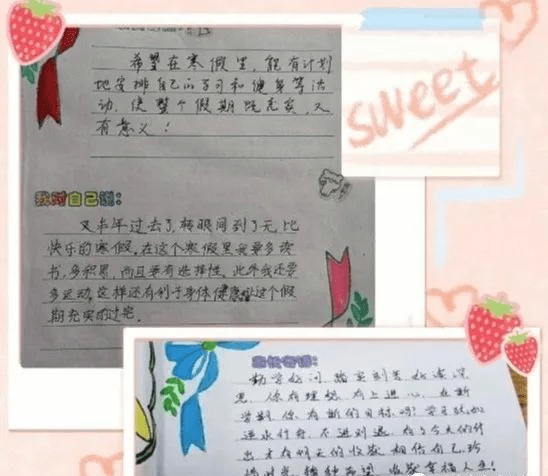 希望在寒假里，能有计划
地安排自己的学习和健身等活
动，使整个假期既充实，又
有意义！
sweet
我对自己说：
又半年过去了，转眼间到了无比
快乐的寒假。在这个寒假里我要多读
书，多积累，而且要有选择性。此外我还要
多运动，这样还有利于身体健康。这个假
期充实的过完。
家长寄语：
勤学好问，踏实刻苦，好读深
思，你有理想，有上进心，在新
学期，你有新的目标吗？学习就如
逆水行舟，不进则退，有了今天的付
出才有明天的收获，相信自己，珍
惜时光，播种希望，收获幸福人生！